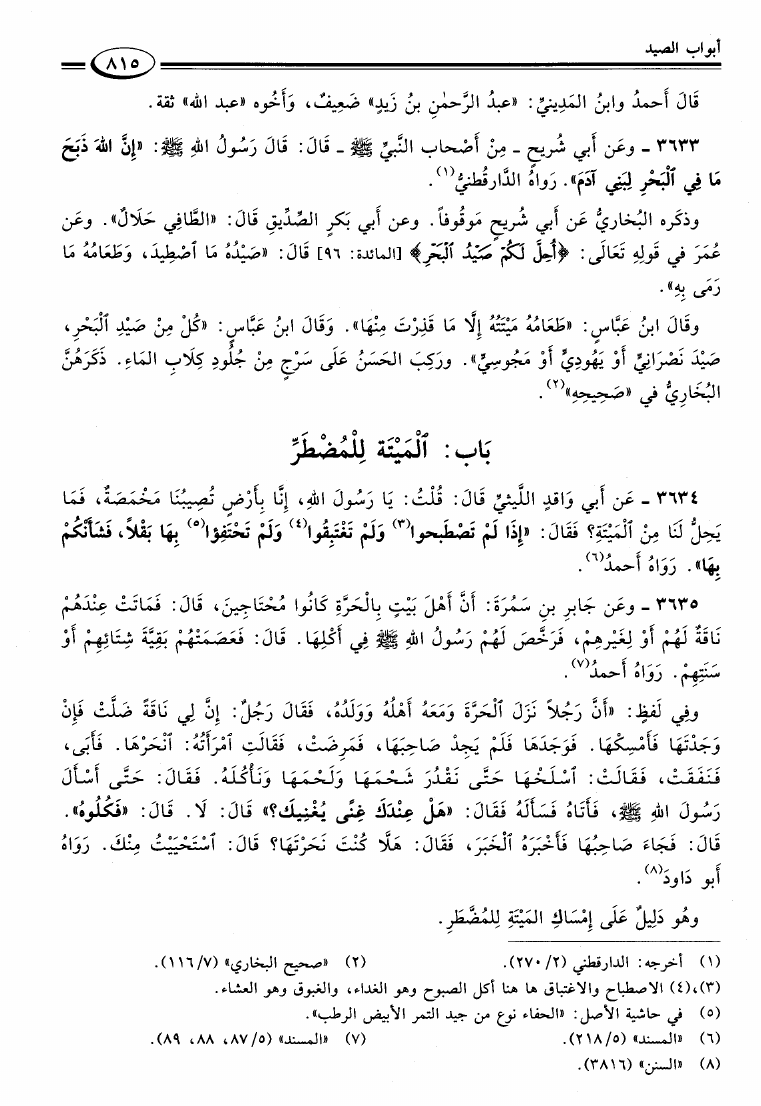 أبواب الصيد
٨١٥
قَالَ أَحمدُ وابنُ المَدِينيِّ: «عبدُ الرَّحمٰنِ بنُ زَيدٍ» ضَعِيفٌ، وَأَخُوه «عبد الله» ثقة.
٣٦٣٣ ـ وعَن أَبي شُريحٍ ـ مِنْ أَصْحاب النَّبيِّ ﷺ ـ قَالَ: قَالَ رَسُولُ اللهِ ﷺ: «إِنَّ اللهَ ذَبَحَ
مَا فِي ٱلْبَحْرِ لِبَنِي آدَمَ». رَواهُ الدَّارقطنيُّ(١).
وذكَره البُخاريُّ عَن أَبي شريحٍ مَوقُوفاً. وعن أَبي بَكرٍ الصِّدِّيقِ قَالَ: «الطَّافِي حَلَالٌ». وعَن
عُمَرَ في قَولِهِ تَعَالَى: ﴿أُحِلَّ لَكُمْ صَيْدُ ٱلْبَحْرِ﴾ [المائدة: ٩٦] قَالَ: «صَيْدُهُ مَا ٱصْطِيدَ، وَطَعَامُهُ مَا
رَمَى بِهِ».
وقَالَ ابنُ عَبَّاسٍ: «طَعَامُهُ مَيْتَتُهُ إِلَّا مَا قَذِرْتَ مِنْهَا». وَقَالَ ابنُ عَبَّاسٍ: «كُلْ مِنْ صَيْدِ ٱلْبَحْرِ،
صَيْدَ نَصْرَانِيٍّ أَوْ يَهُودِيٍّ أَوْ مَجُوسِيٍّ». ورَكِبَ الحَسَنُ عَلَى سَرْجٍ مِنْ جُلُودِ كِلَابِ المَاءِ. ذَكَرَهُنَّ
البُخَارِيُّ في «صَحِيحِهِ»(٢).
بَاب: ٱلْمَيْتَة لِلْمُضْطَرِّ
٣٦٣٤ ـ عَن أَبي وَاقدٍ اللَّيثيِّ قَالَ: قُلْتُ: يَا رَسُولَ اللهِ، إِنَّا بِأَرْضٍ تُصِيبُنَا مَخْمَصَةٌ، فَمَا
يَحِلُّ لَنَا مِنْ ٱلْمَيْتَةِ؟ فَقَالَ: «إِذَا لَمْ تَصْطَبِحوا(٣) وَلَمْ تَغْتَبِقُوا(٤) وَلَمْ تَحْتَفِؤا(٥) بِهَا بَقْلاً، فَشَأْنُكُمْ
بِهَا». رَوَاهُ أَحمدُ(٦).
٣٦٣٥ ـ وعَن جَابرِ بنِ سَمُرَةَ: أَنَّ أَهْلَ بَيْتٍ بِالْحَرَّةِ كَانُوا مُحْتَاجِينَ، قَالَ: فَمَاتَتْ عِنْدَهُمْ
نَاقَةٌ لَهُمْ أَوْ لِغَيْرِهِمْ، فَرَخَّصَ لَهُمْ رَسُولُ اللهِ ﷺ فِي أَكْلِهَا. قَالَ: فَعَصَمَتْهُمْ بَقِيَّةَ شِتَائِهِمْ أَوْ
سَنَتِهِمْ. رَوَاهُ أَحمدُ(٧).
وفي لَفظٍ: «أَنَّ رَجُلاً نَزَلَ ٱلْحَرَّةَ وَمَعَهُ أَهْلُهُ وَوَلَدُهُ، فَقَالَ رَجُلٌ: إِنَّ لِي نَاقَةً ضَلَّتْ فَإِنْ
وَجَدْتَهَا فَأَمْسِكْهَا. فَوَجَدَهَا فَلَمْ يَجِدْ صَاحِبَهَا، فَمَرِضَتْ، فَقَالَتِ ٱمْرَأَتُهُ: ٱنْحَرْهَا. فَأَبَى،
فَنَفَقَتْ، فَقَالَتْ: ٱسْلَخْهَا حَتَّى نَقْدُرَ شَحْمَهَا وَلَحْمَهَا وَنَأْكُلَهُ. فَقَالَ: حَتَّى أَسْأَلَ
رَسُولَ اللهِ ﷺ، فَأَتَاهُ فَسَأَلَهُ فَقَالَ: «هَلْ عِنْدَكَ غِنًى يُغْنِيكَ؟» قَالَ: لَا. قَالَ: «فَكُلُوهُ».
قَالَ: فَجَاءَ صَاحِبُهَا فَأَخْبَرَهُ ٱلْخَبَرَ، فَقَالَ: هَلَّا كُنْتَ نَحَرْتَهَا؟ قَالَ: ٱسْتَحْيَيْتُ مِنْكَ. رَوَاهُ
أَبو دَاودَ(٨).
وهُو دَلِيلٌ عَلَى إِمْسَاكِ المَيْتَةِ لِلمُضَّطَرِ.
(١) أخرجه: الدارقطني (٢/ ٢٧٠). (٢) «صحيح البخاري» (٧/ ١١٦).
(٣)،(٤) الاصطباح والاغتباق ها هنا أكل الصبوح وهو الغداء، والغبوق وهو العشاء.
(٥) في حاشية الأصل: «الحفاء نوع من جيد التمر الأبيض الرطب».
(٦) «المسند» (٥/ ٢١٨). (٧) «المسند» (٥/ ٨٧، ٨٨، ٨٩).
(٨) «السنن» (٣٨١٦).